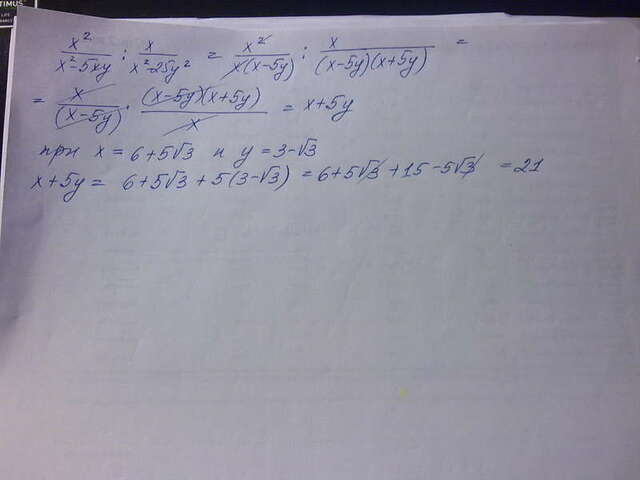 TIMUS
x²/(x²-5xy) : x/(x²-25y²) = x²/(x(x-5y)) : x/((x-5y)(x+5y)) =
= x/(x-5y) · (x-5y)(x+5y)/x = x+5y
при x = 6+5√3 и y = 3-√3
x+5y = 6+5√3+5(3-√3) = 6+5√3+15-5√3 = 21